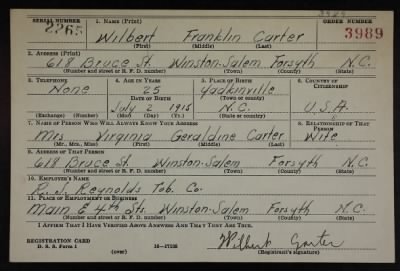 SERIAL NUMBER 1. NAME (Print) ORDER NUMBER
2265 Wilbert Franklin Carter 3989
(First) (Middle) (Last)
2. ADDRESS (Print)
618 Bruce St. Winston-Salem Forsyth N.C.
(Number and street or R. F. D. number) (Town) (County) (State)
3. TELEPHONE 4. AGE IN YEARS 5. PLACE OF BIRTH 6. COUNTRY OF CITIZENSHIP
None 25 Yadkinville
DATE OF BIRTH (Town or county)
July 2 1915 N.C. U.S.A.
(Exchange) (Number) (Mo.) (Day) (Yr.) (State or country)
7. NAME OF PERSON WHO WILL ALWAYS KNOW YOUR ADDRESS 8. RELATIONSHIP OF THAT PERSON
Mrs Virginia Geraldine Carter Wife
(Mr., Mrs., Miss) (First) (Middle) (Last)
9. ADDRESS OF THAT PERSON
618 Bruce St. Winston-Salem Forsyth N.C.
(Number and street or R. F. D. number) (Town) (County) (State)
10. EMPLOYER'S NAME
R. J. Reynolds Tob. Co.
11. PLACE OF EMPLOYMENT OR BUSINESS
Main E 4th Sts. Winston-Salem Forsyth N.C.
(Number and street or R. F. D. number) (Town) (County) (State)
I AFFIRM THAT I HAVE VERIFIED ABOVE ANSWERS AND THAT THEY ARE TRUE.
REGISTRATION CARD
D. S. S. Form 1 (over) 16-17105 Wilbert Carter
(Registrant's signature)